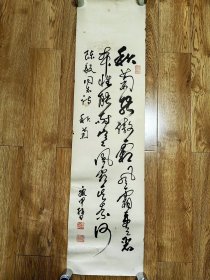 秋菊能傲霜风霜重重恶
本性能耐寒风霜其奈何
陈毅同志诗 秋菊
庚申